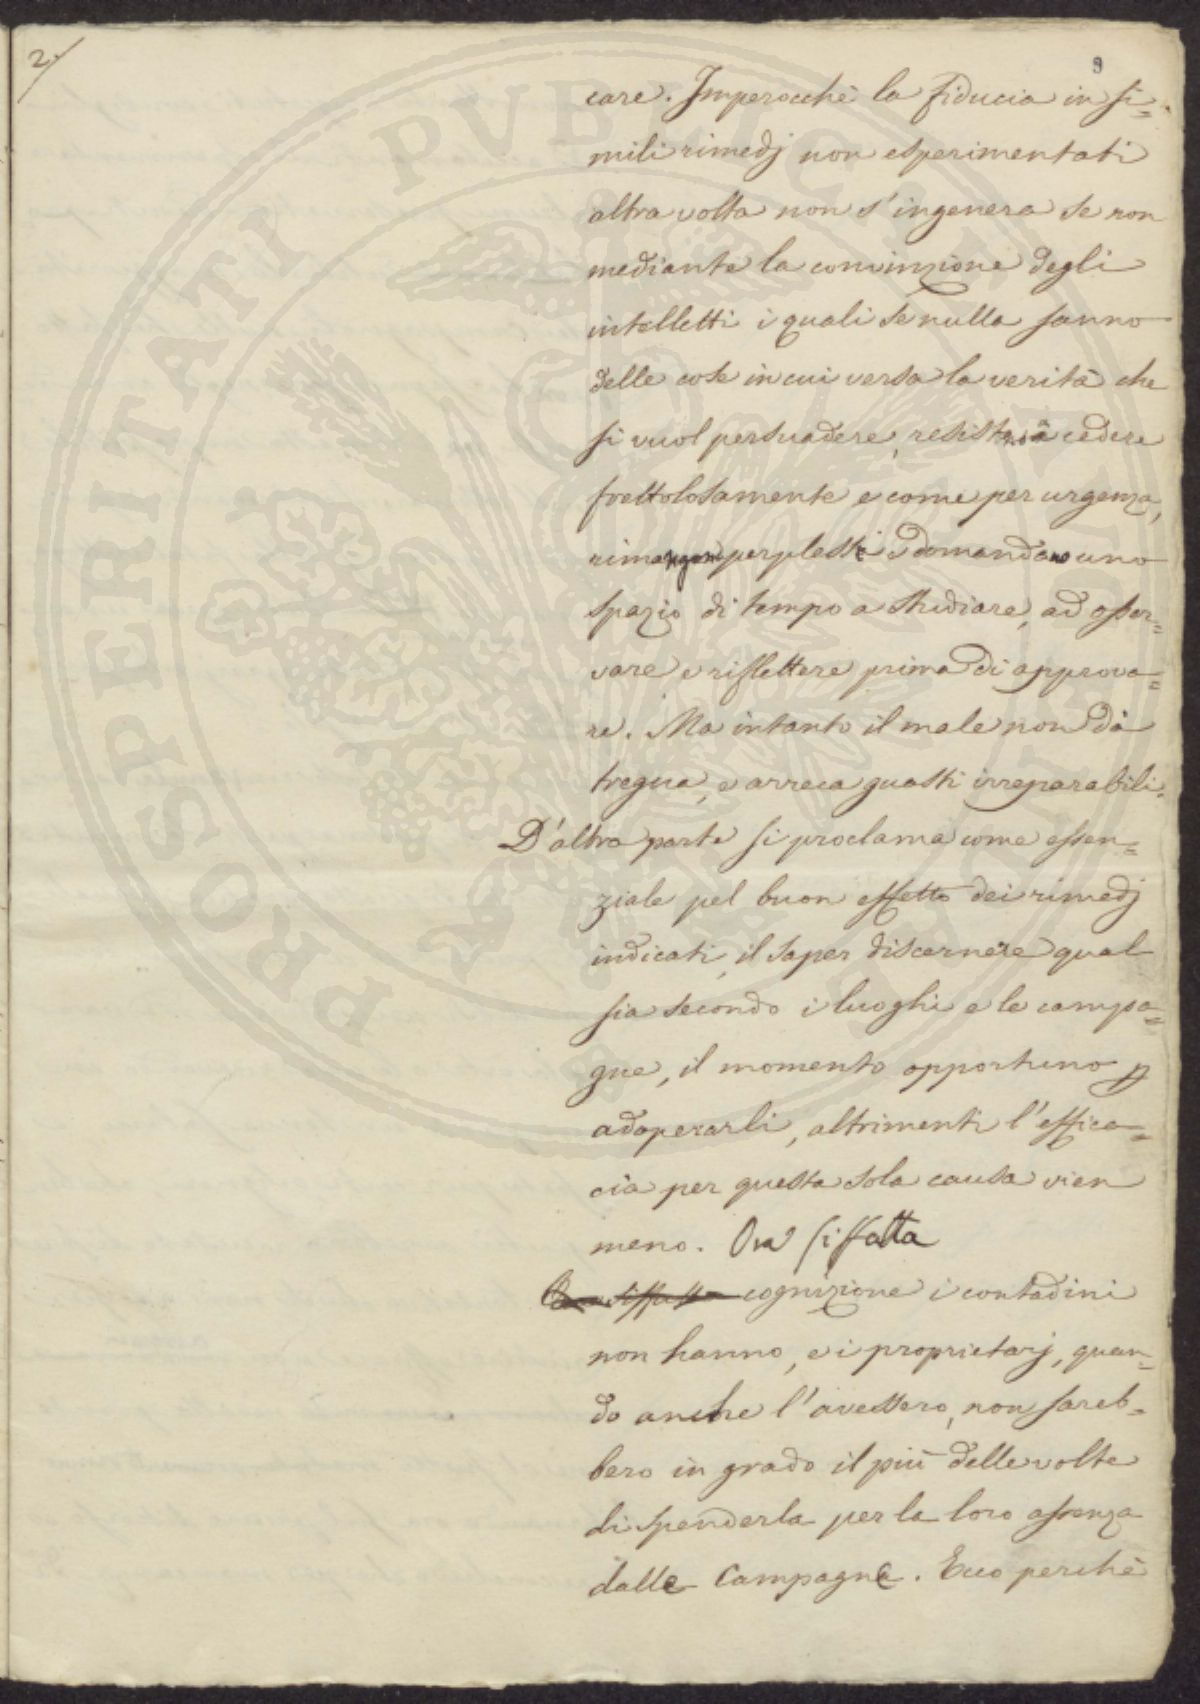 2.
9
care. Imperocchè la fiducia in si=
mili rimedj non esperimentati
altra volta non s'ingenera se non
mediante la convinzione degli
intelletti i quali se nulla sanno
delle cose in cui versa la verità che
si vuol persuadere, resistono à cedere
frettolosamente e come per urgenza,
rimangono perplessi e domandano uno
spazio di tempo a studiare, ad osser=
vare e riflettere prima di approva=
re. Ma intanto il male non dà
tregua, e arreca guasti irreparabili.
D'altra parte si proclama come essen=
ziale pel buon effetto dei rimedj
indicati, il saper discernere qual
sia secondo i luoghi e le campa=
gne, il momento opportuno p
adoperarli, altrimenti l'effica=
cia per questa sola causa vien
meno. Ora siffatta
Ora siffatta cognizione i contadini
non hanno, e i proprietarj, quan=
do anche l'avessero, non sareb=
bero in grado il più delle volte
di spenderla per la loro assenza
dalle Campagne. Ecco perchè
PROSPERITATI PUBLICAE AUGENDAE